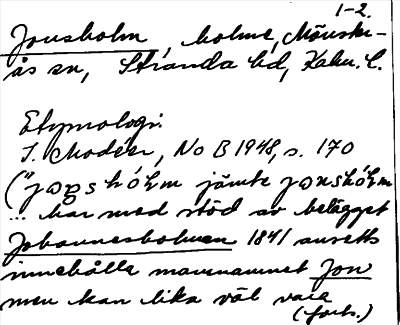 1-2.
Jonsholm, holme, Mönster-
ås sn, Stranda hd, Kalm. l.
Etymologi.
I. Modéer, No B 1948, s. 170
("jɔnshólm jämte jɔnshólm
... har med stöd av belägget
Johannesholmen 1841 ansetts
innehålla mansnamnet Jon
men kan lika väl vara
(forts.)